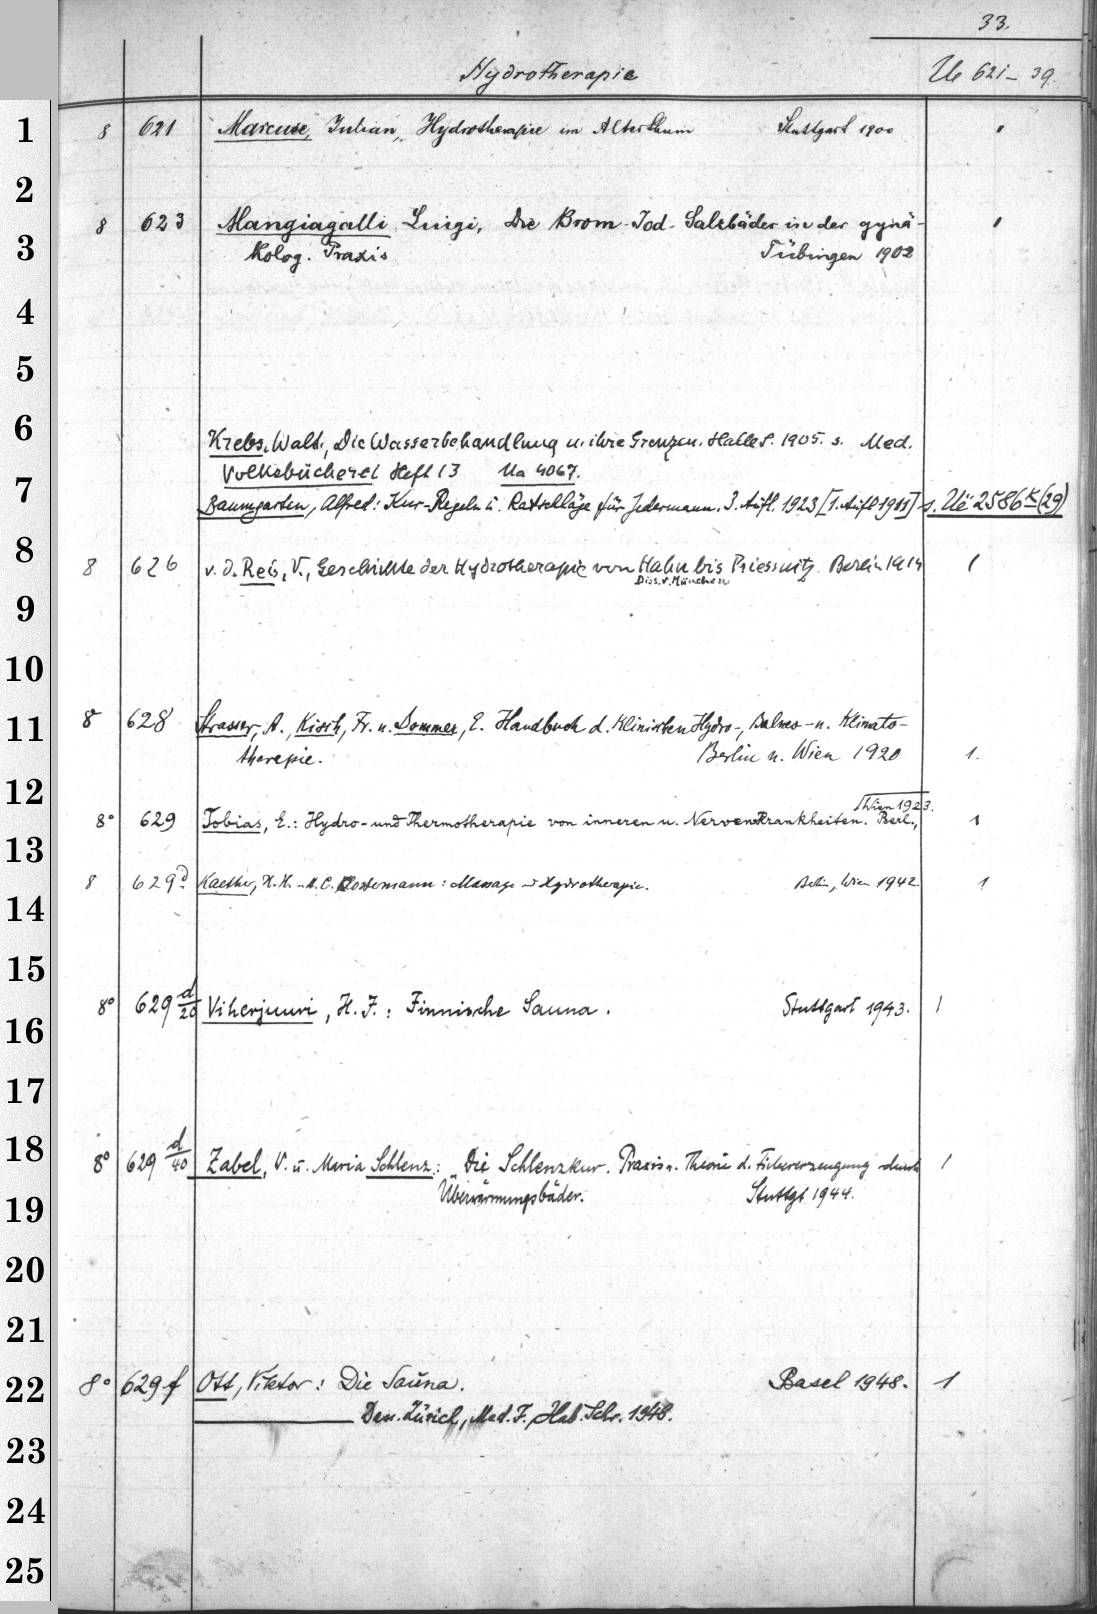 33.
Hydrotherapie Ue 621-39.
1
8 621 Marcuse, Julian, Hydrotherapie im Alterthum Stuttgart 1900 1
2
8 623 Mangiagalli Luigi, Die Brom-Jod-Salzbäder in der gynä- 1
3
kolog. Praxis Tübingen 1902
4
5
6
Krebs, Walt., Die Wasserbehandlung u. ihre Grenzen. Halle S. 1905. s. Med.
Volksbücherei Heft 13 Ua 4067.
7
Baumgarten, Alfred: Kur-Regeln u. Ratschläge für Jedermann. 3. Aufl. 1923 [1. Aufl 1901] s. Ue 2586 k (29)
8
8 626 v. d. Reis, V., Geschichte der Hydrotherapie von Hahn bis Priessnitz. Berlin 1914 1
Diss. v. München
9
10
8 628 Strasser, A., Kisch, Fr. u. Sommer, E. Handbuch d. klinischen Hydro-, Balneo- u. Klimato-
11
therapie. Berlin u. Wien 1920 1.
12
Wien 1923.
8° 629 Tobias, E.: Hydro- und Thermotherapie von inneren u. Nervenkrankheiten. Berl., 1
13
8 629 d Kaether, H. H. u. A. C. Klostermann: Massage und Hydrotherapie. Berlin, Wien 1942. 1
14
15
8° 629 d/20 Viherjuuri, H. J.: Finnische Sauna. Stuttgart 1943. 1
16
17
18
8° 629 d/40 Zabel, V. u. Maria Schlenz: Die Schlenzkur. Praxis u. Theorie d. Fiebererzeugung durch 1
Überwärmungsbäder. Stuttgt 1944.
19
20
21
22
8° 629 f Ott, Viktor: Die Sauna. Basel 1948. 1
Zürich, Med. F., Hab. Schr. 1948.
23
24
25